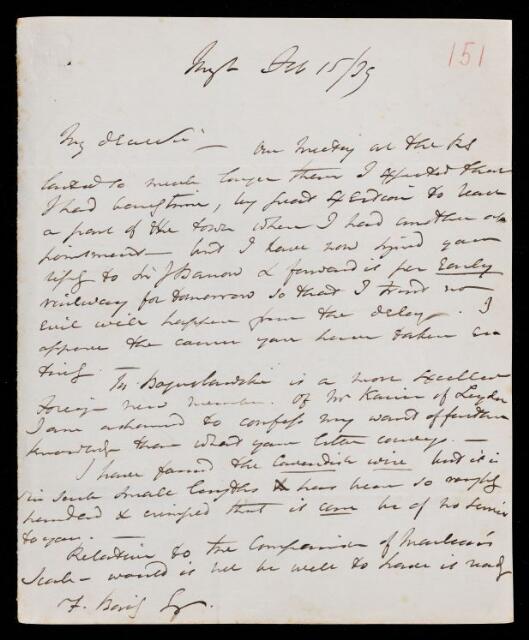 151
Feb 15/39
My dear Sir — Our Meeting at the RS
lasted so much longer than I expected that
I had time, by great exertion to reach
a part of the town when I had another ap
pointment — but I have now signed your
reply to Sir J Barrow & forward it per Early
railway for tomorrow so that I trust no
evil will happen from the delay. I
approve the course you have taken en
tirely. — M. Boguslawski is a most excellent
foreign new member. Of Mr Kaiser of Leyden
I am ashamed to confess my want of further
knowledge than what your letter conveys. —
I have found the Cavendish wire but it is
in such small lengths & has been so roughly
handled & crimped that it can be of no service
to you. —
Relative to the Comparison of
Scale — would it not be well to have it ready
F. Baily Esq.